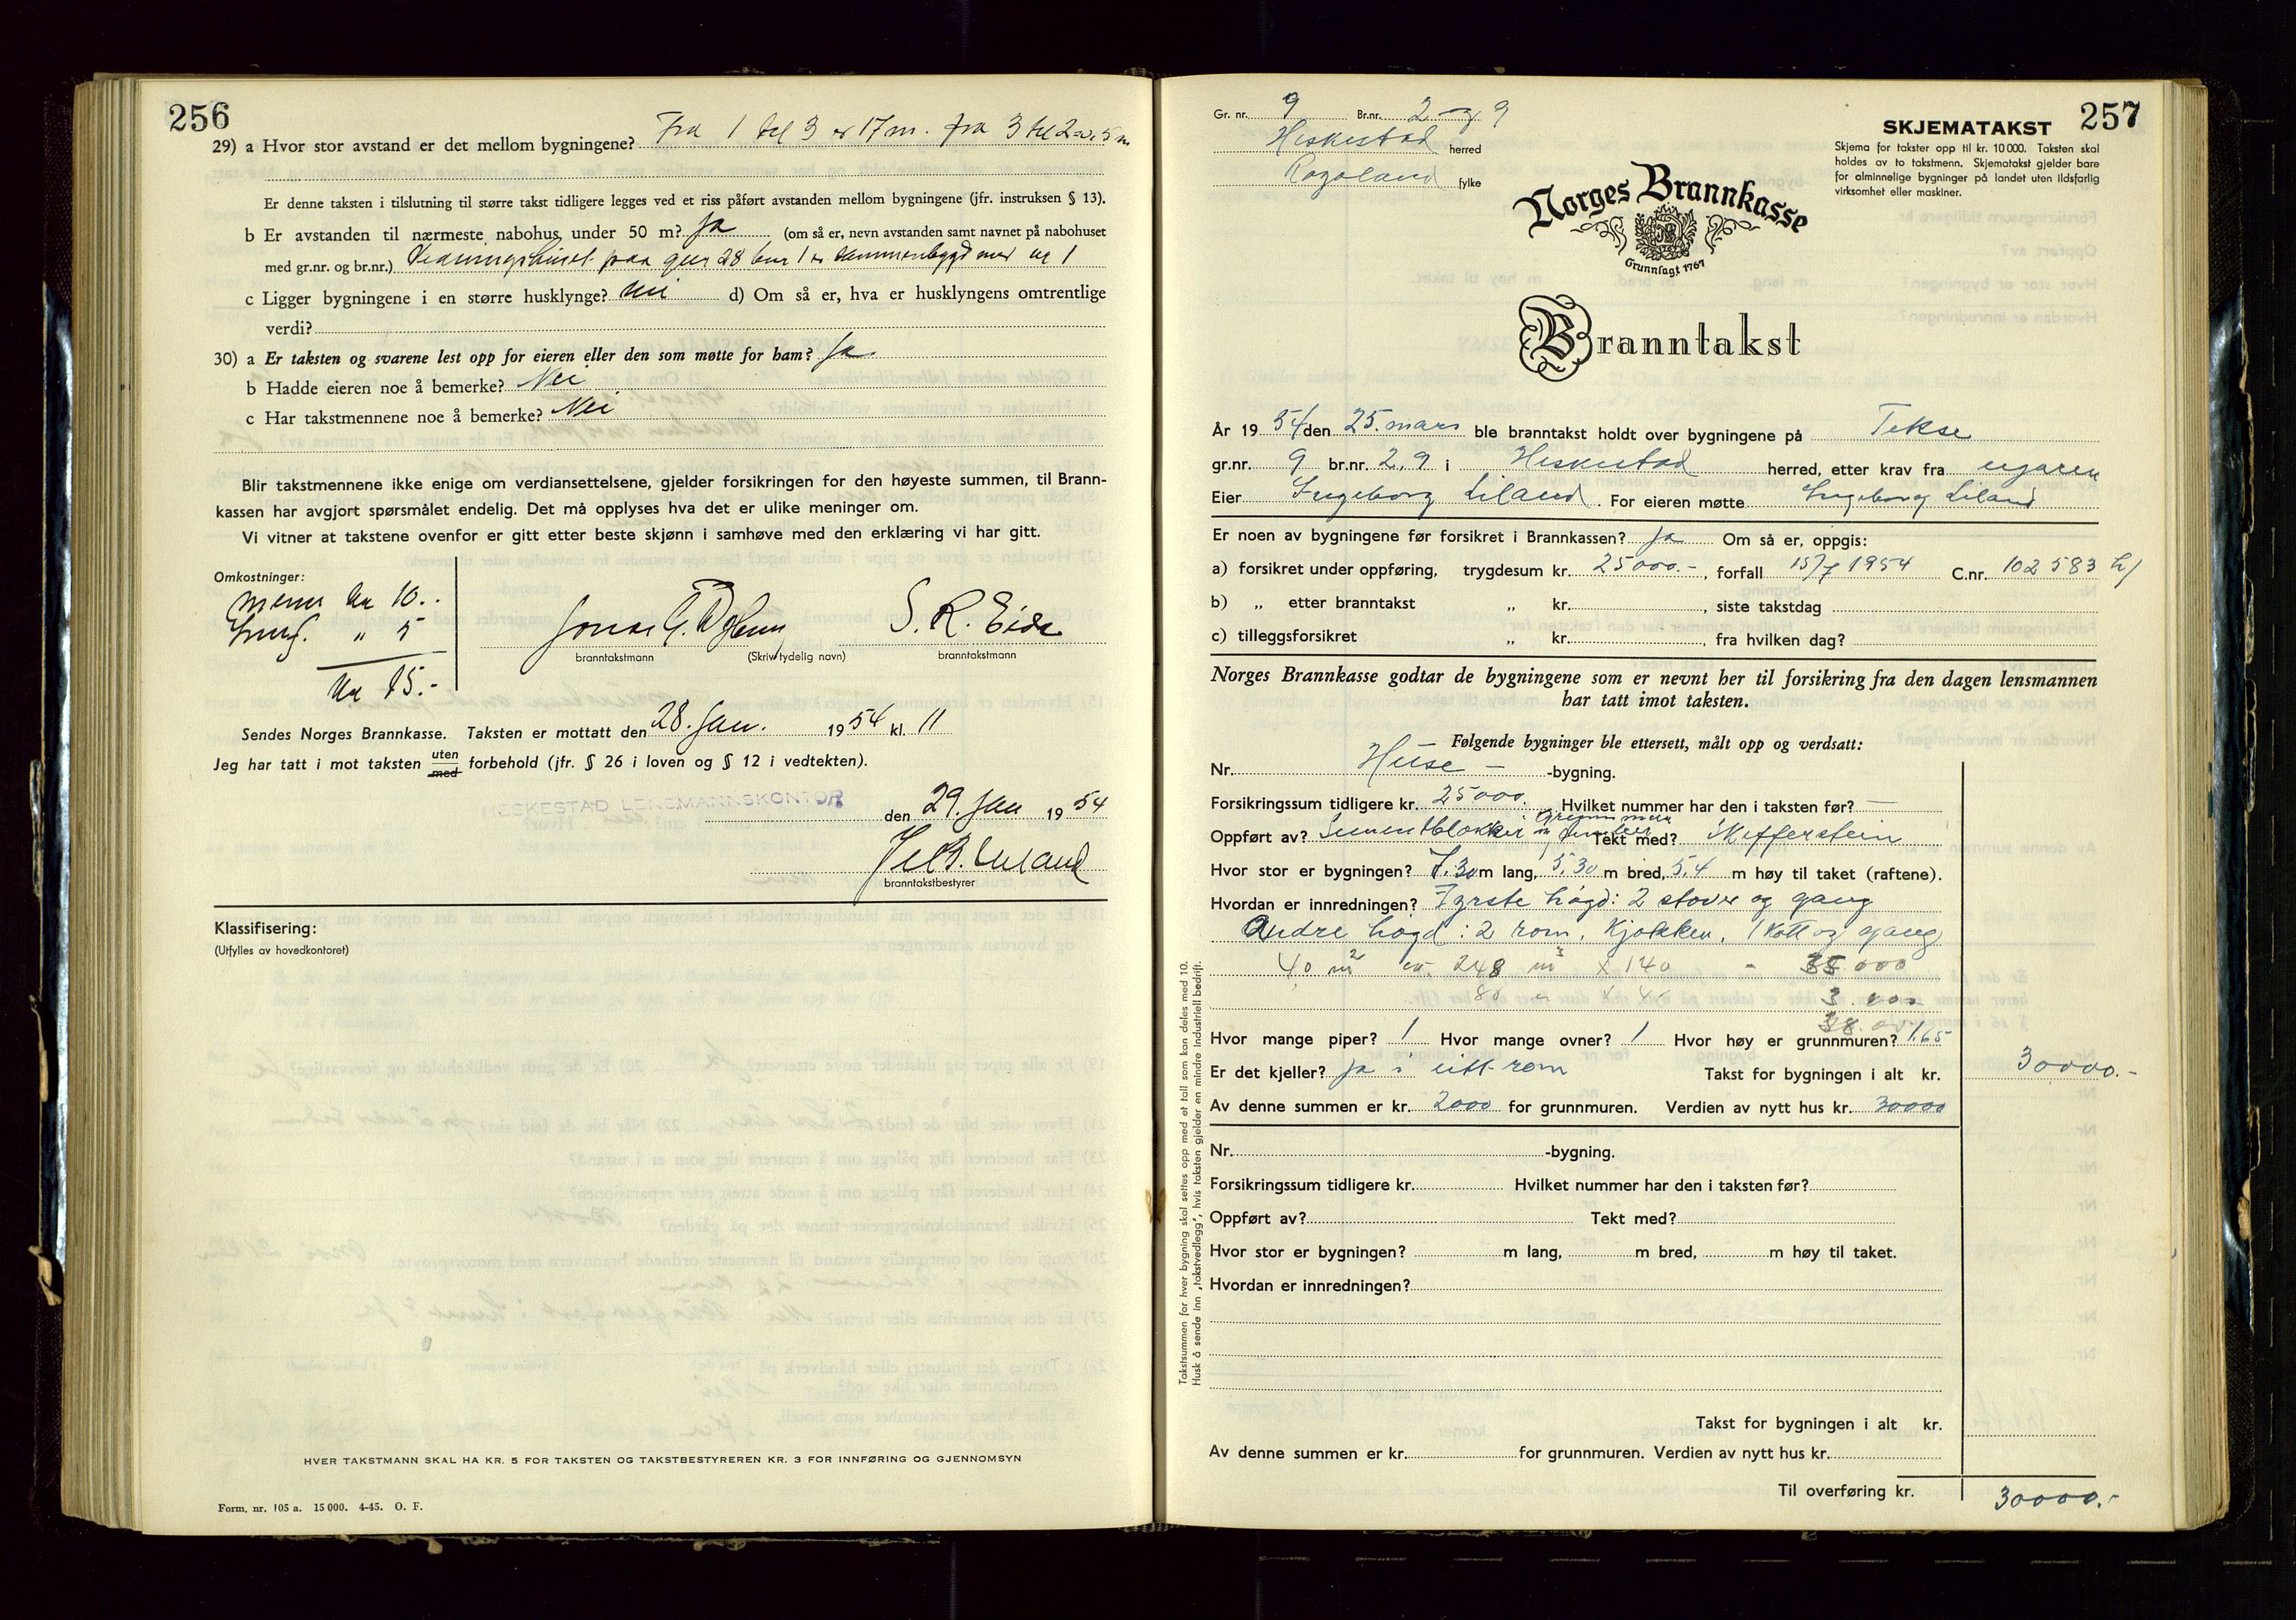 256
29) a Hvor stor avstand er det mellom bygningene? Fra 1 til 3 er 17 m. fra 3 til 2 er 5 m.
Er denne taksten i tilslutning til større takst tidligere legges ved et riss påført avstanden mellom bygningene (jfr. instruksen § 13).
b Er avstanden til nærmeste nabohus under 50 m? Ja (om så er, nevn avstanden samt navnet på nabohuset
med gr.nr. og br.nr.) Vaaningshuset paa gnr 28 bnr 1 er sammenbygd med nr 1
c Ligger bygningene i en større husklynge? Nei d) Om så er, hva er husklyngens omtrentlige
verdi?
30) a Er taksten og svarene lest opp for eieren eller den som møtte for ham? Ja
b Hadde eieren noe å bemerke? Nei
c Har takstmennene noe å bemerke? Nei
Blir takstmennene ikke enige om verdiansettelsene, gjelder forsikringen for den høyeste summen, til Brann-
kassen har avgjort spørsmålet endelig. Det må opplyses hva det er ulike meninger om.
Vi vitner at takstene ovenfor er gitt etter beste skjønn i samhøve med den erklæring vi har gitt.
Omkostninger:
menn kr 10..
" 5
kr 15.-
S. R. Eide
branntakstmann (Skriv tydelig navn) branntakstmann
Sendes Norges Brannkasse. Taksten er mottatt den 28. jan. 1954 kl. 11
Jeg har tatt i mot taksten uten
med forbehold (jfr. § 26 i loven og § 12 i vedtekten).
HESKESTAD LENSMANNSKONTOR den 29. jan 1954
branntakstbestyrer
Klassifisering:
(Utfylles av hovedkontoret)
HVER TAKSTMANN SKAL HA KR. 5 FOR TAKSTEN OG TAKSTBESTYREREN KR. 3 FOR INNFØRING OG GJENNOMSYN
Form. nr. 105 a. 15 000. 4-45. O. F.
257
Gr. nr. 9 Br.nr. 2 og 9
Heskestad herred
Rogaland fylke
SKJEMATAKST
Skjema for takster opp til kr. 10 000. Taksten skal
holdes av to takstmenn. Skjematakst gjelder bare
for alminnelige bygninger på landet uten ildsfarlig
virksomhet eller maskiner.
Norges Brannkasse
Grunnlagt 1767
Branntakst
År 1954 den 25. mars ble branntakst holdt over bygningene på Tekse
gr.nr. 9 br.nr. 2, 9 i Heskestad herred, etter krav fra eigaren
Eier Ingeborg Liland. For eieren møtte Ingeborg Liland
Er noen av bygningene før forsikret i Brannkassen? ja Om så er, oppgis:
a) forsikret under oppføring, trygdesum kr. 25000.-, forfall 15/7 1954 C.nr. 102 583 h/
b) „ etter branntakst „ kr. , siste takstdag
c) tilleggsforsikret „ kr. , fra hvilken dag?
Norges Brannkasse godtar de bygningene som er nevnt her til forsikring fra den dagen lensmannen
har tatt imot taksten.
Følgende bygninger ble ettersett, målt opp og verdsatt:
Nr. Huse - -bygning.
Forsikringssum tidligere kr. 25000. Hvilket nummer har den i taksten før? —
Oppført av? Sementblokker i Grunnmur Tekt med? Skifferstein
Hvor stor er bygningen? 7.30 m lang, 5,30 m bred, 5,4 m høy til taket (raftene).
Hvordan er innredningen? Fyrste høgd: 2 stover og gang
Andre høgd: 2 rom, Kjøkken, 1 Kott og gang
40 m² 248 m³ x 140 - 35.000
3.000
38.000
Hvor mange piper? 1 Hvor mange ovner? 1 Hvor høy er grunnmuren? 1,65
Er det kjeller? ja i eitt rom Takst for bygningen i alt kr. 30000.-
Av denne summen er kr. 2000 for grunnmuren. Verdien av nytt hus kr. 30000
Nr. -bygning.
Forsikringssum tidligere kr. Hvilket nummer har den i taksten før?
Oppført av? Tekt med?
Hvor stor er bygningen? m lang, m bred, m høy til taket.
Hvordan er innredningen?
Takst for bygningen i alt kr.
Av denne summen er kr. for grunnmuren. Verdien av nytt hus kr.
Til overføring kr. 30000.-
Takstsummen for hver bygning skal settes opp med et tall som kan deles med 10.
Husk å sende inn „takstvedlegg", hvis taksten gjelder en mindre industriell bedrift.